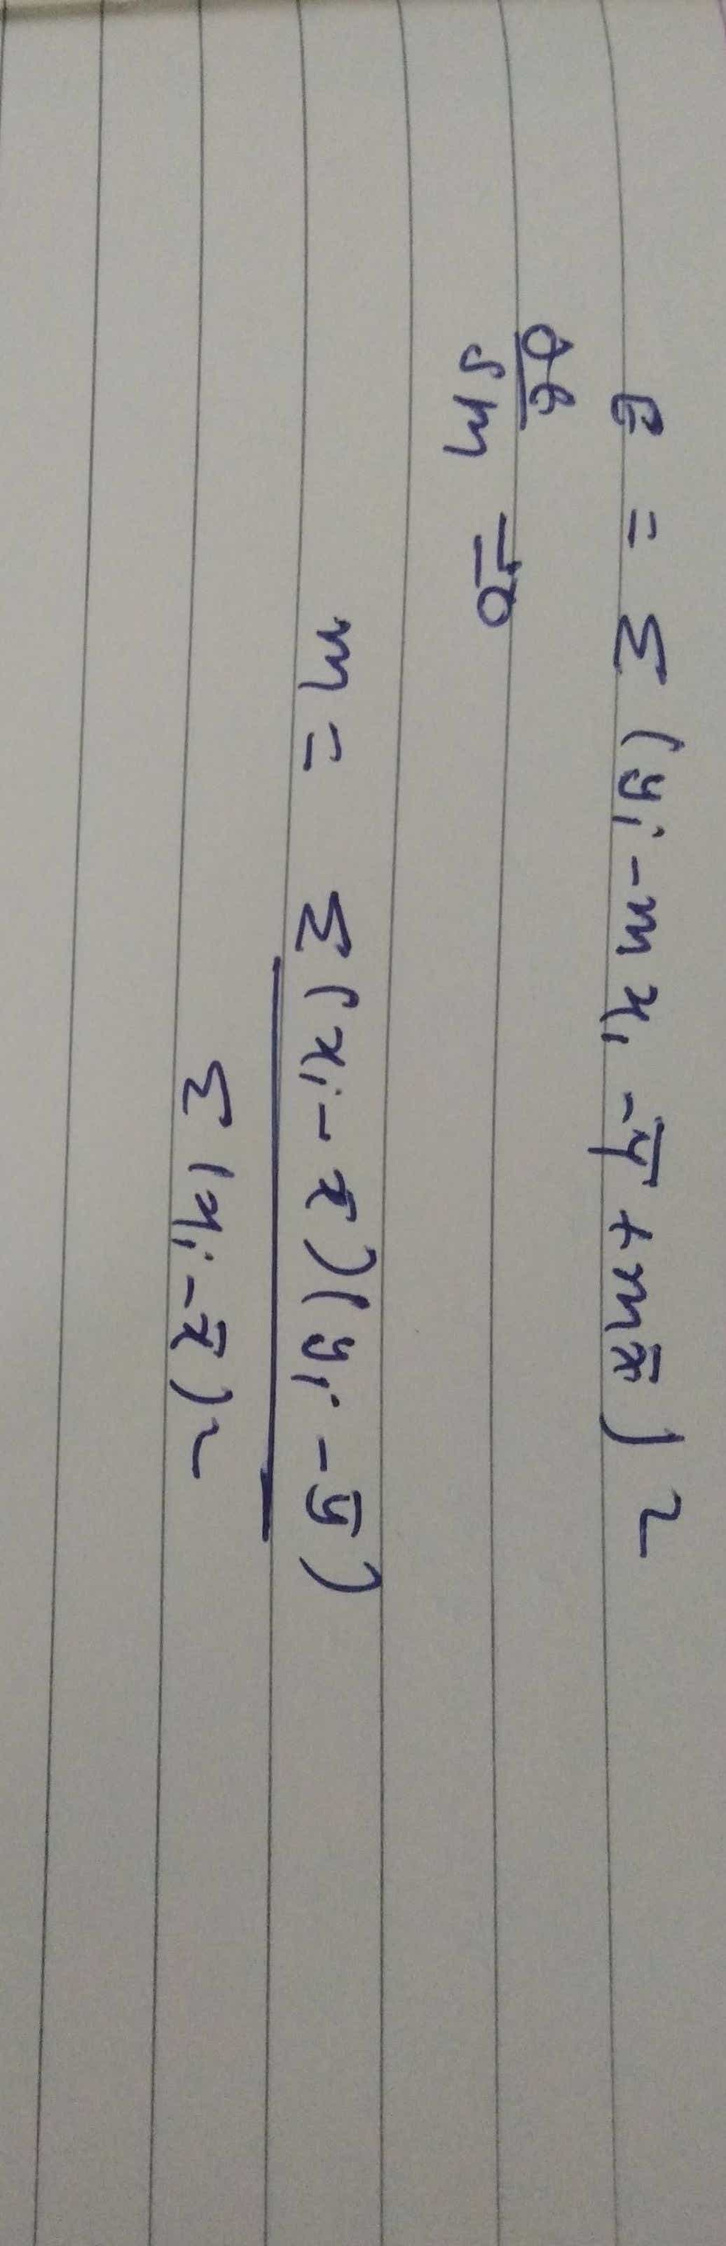 E = Σ (yi - m xi - ȳ + m x̄)²
δE/δm = 0
m = Σ(xi - x̄)(yi - ȳ) / Σ(xi - x̄)²